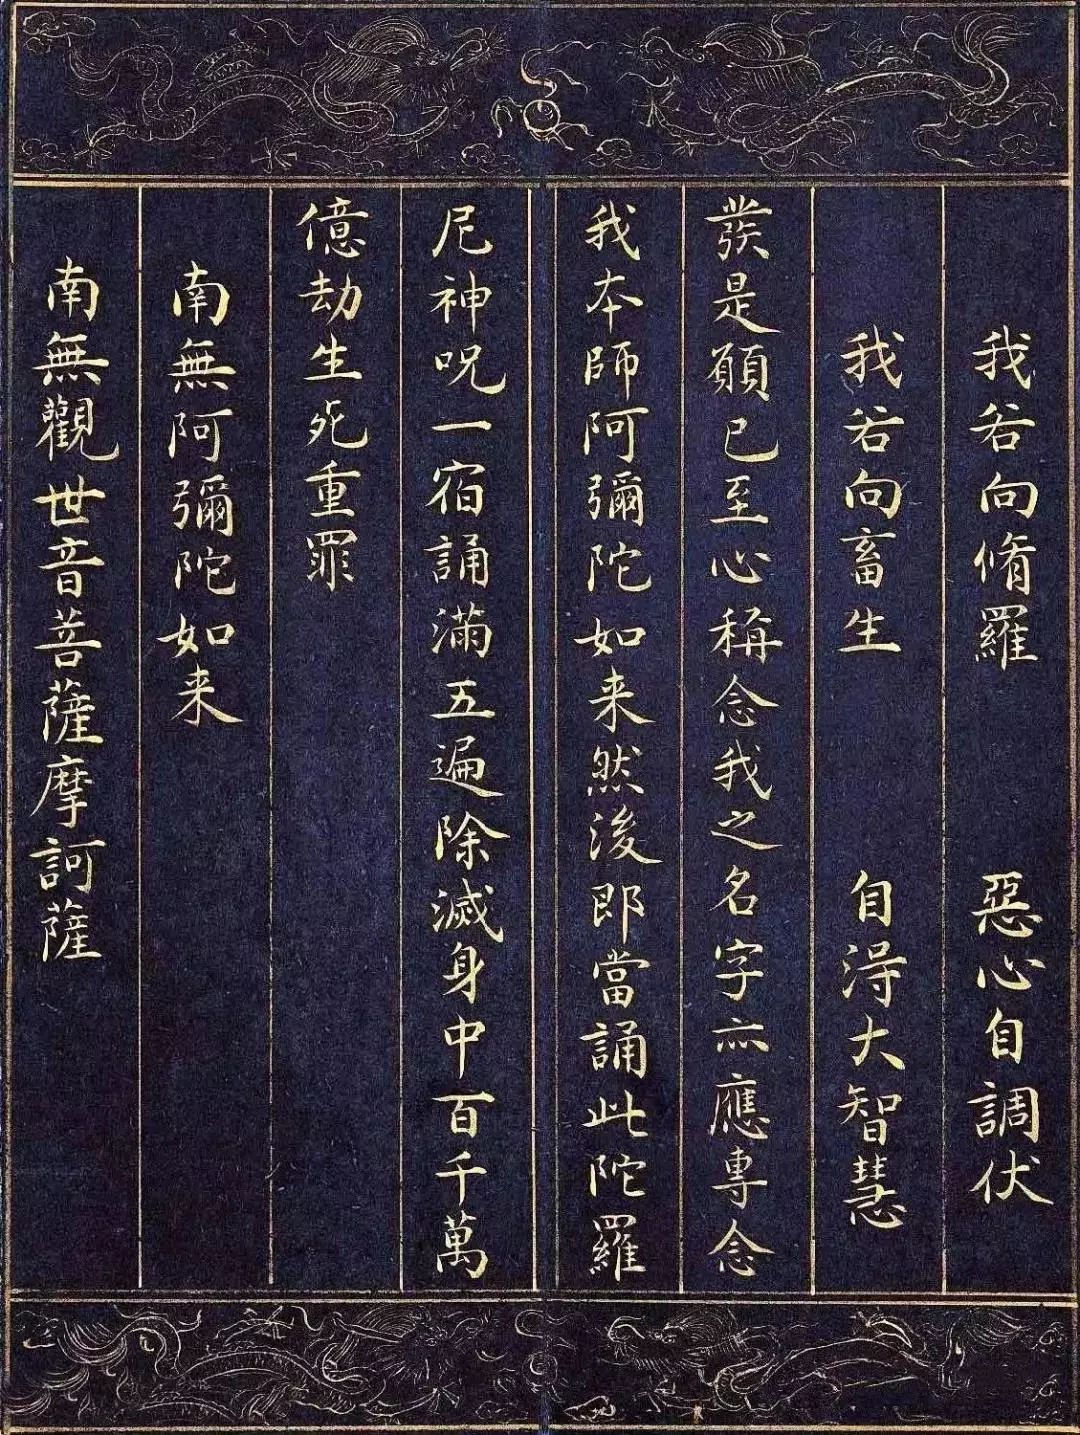 我若向脩羅　惡心自調伏
我若向畜生　自淂大智慧
發是願已至心稱念我之名字亦應專念
我本師阿彌陀如来然後即當誦此陀羅
尼神呪一宿誦滿五遍除滅身中百千萬
億劫生死重罪
南無阿彌陀如来
南無觀世音菩薩摩訶薩